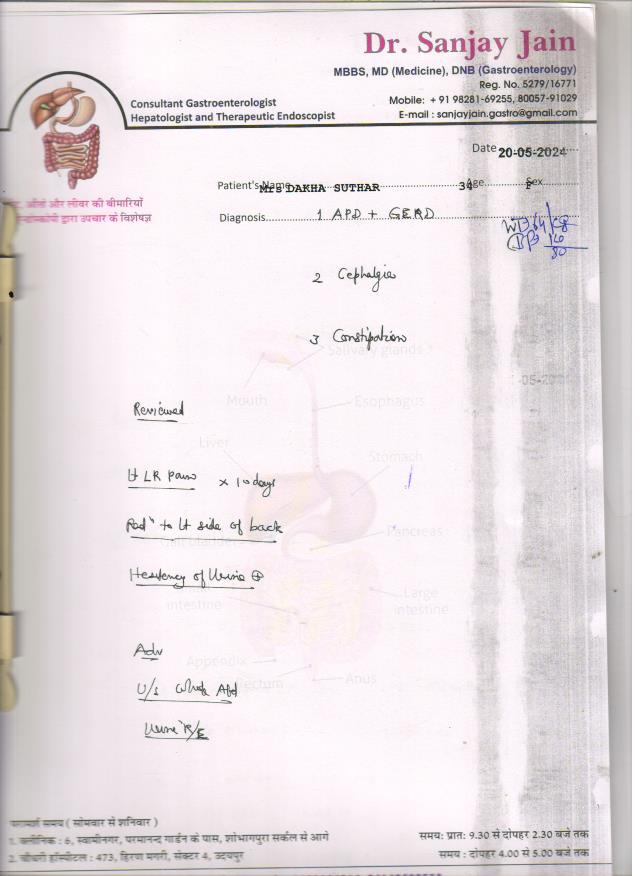 Dr. Sanjay Jain
MBBS, MD (Medicine), DNB (Gastroenterology)
Reg. No. 5279/16771
Mobile: +91 98281-69255, 80057-91029
E-mail : sanjayjain.gastro@gmail.com
Consultant Gastroenterologist
Hepatologist and Therapeutic Endoscopist
आँतों और लीवर की बीमारियों
द्वारा उपचार के विशेषज्ञ
Date 20-05-2024
Patient's Name Mrs DAKHA SUTHAR 34 Age F Sex
Diagnosis 1 APD + GERD
80
2 Cephalgia
3 Constipation
Salivary glands
-05-20
Mouth Esophagus
Reviewed
Liver
Stomach
Lt LR Pain x 10 days
Radn to Lt side of back
Pancreas
Hesitency of Urine ⊕
intestine
Large
intestine
Adv
Appendix
Rectum Anus
U/S Whole Abd
Urine R/E
परामर्श समय ( सोमवार से शनिवार )
1. क्लीनिक : 6, स्वामीनगर, परमानन्द गार्डन के पास, शोभागपुरा सर्कल से आगे समय: प्रातः 9.30 से दोपहर 2.30 बजे तक
2. चौधरी हॉस्पीटल : 473, हिरण मगरी, सेक्टर 4, उदयपुर समय : दोपहर 4.00 से 5.00 बजे तक